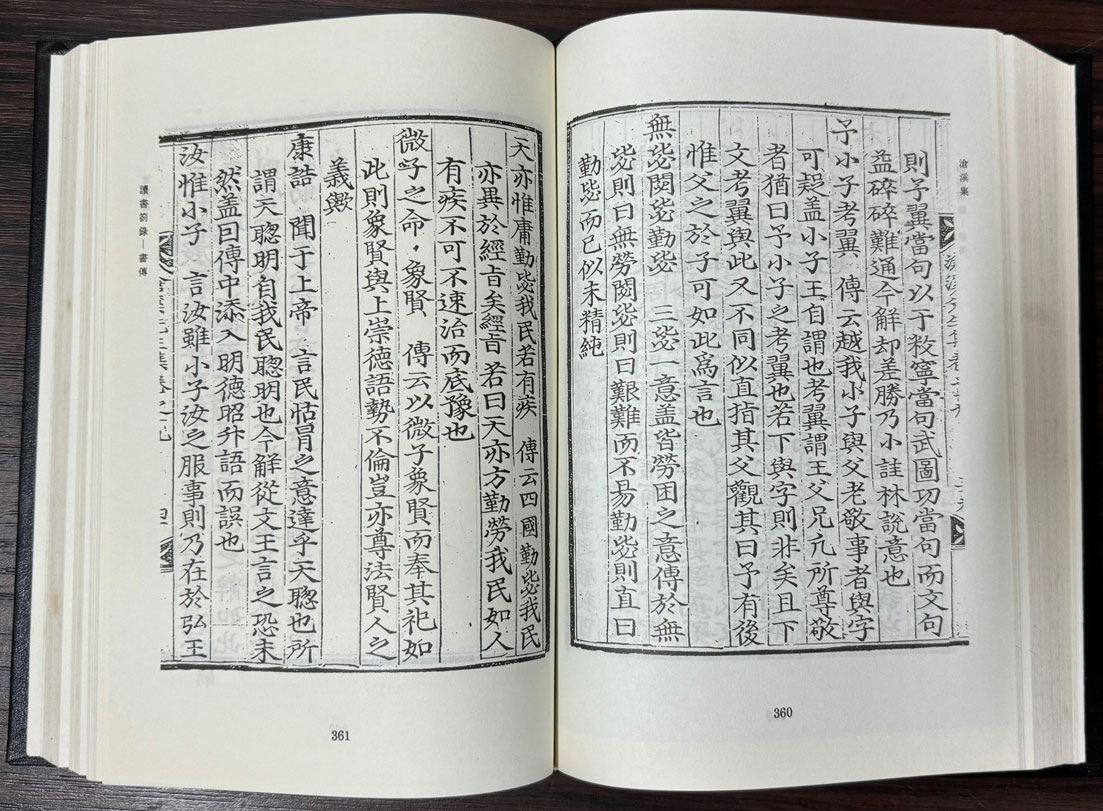 滄溪集
則予翼當句以于敉寧當句武圖功當句而文句
益碎碎難通今解却差勝乃小註林說意也
予小子考翼　傳云越我小子與父老敬事者與字
可疑盖小子王自謂也考翼謂王父兄凢所尊敬
者猶曰予小子之考翼也若下與字則非矣且下
文考翼與此又不同似直指其父觀其曰予有後
惟父之於子可如此爲言也
無毖閔毖勤毖　三毖一意盖皆勞困之意傳於無
毖則曰無勞閔毖則曰艱難而不易勤毖則直曰
勤毖而已似未精純
360
天亦惟庸勤毖我民若有疾　傳云四國勤毖我民
亦異於經旨矣經旨若曰天亦方勤勞我民如人
有疾不可不速治而底豫也
微子之命，象賢　傳云以微子象賢而奉其祀如
此則象賢與上崇德語勢不倫豈亦尊法賢人之
義歟
康誥　聞于上帝　言民怙冒之意達乎天聰也所
謂天聰明自我民聰明也今解從文王言之恐未
然盖曰傳中添入明德昭升語而誤也
汝惟小子　言汝雖小子汝之服事則乃在於弘王
讀書箚錄—書傳
361